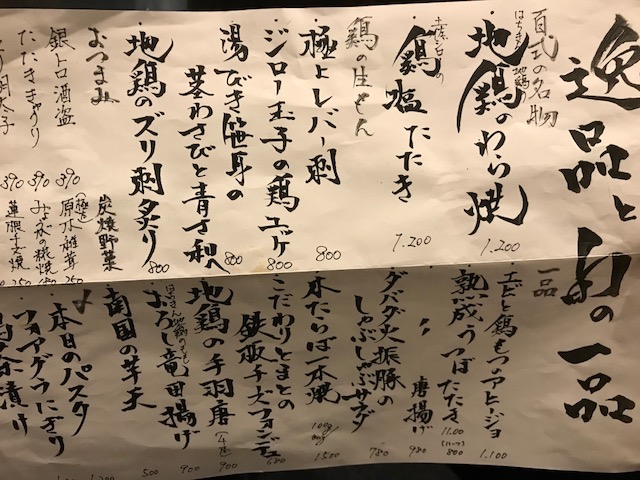 逸品と旬の一品
百式の名物
はちきん地鶏の
地鶏のわら焼
1.200
土佐の
鶏塩たたき
1.200
鶏の生もん
極上レバー刺
800
ジロー玉子の鶏ユッケ
800
湯びき笹身の
茎わさびと青さ和へ
800
地鶏のズリ刺炙り
800
おつまみ
銀トロ酒盗
390
たたききゅうり
390
明太子
390
炭焼野菜
原木椎茸
250
みょがの
焼
蓮根チーズ焼
250
一品
エビと鶏もつのアヒージョ
1.100
熟成うつぼたたき
1100
(ハーフ)
800
〃
唐揚げ
980
ダバダ火振豚の
しゃぶしゃぶサラダ
780
本たらば一本焼
100g
1500
こだわりとまとの
鉄板チーズフォンデュ
680
地鶏の手羽唐
900
はちきん地鶏の
おろし竜田揚げ
900
南国の芋天
500
〆
本日のパスタ
1.200
フォアグラにぎり
茶漬け